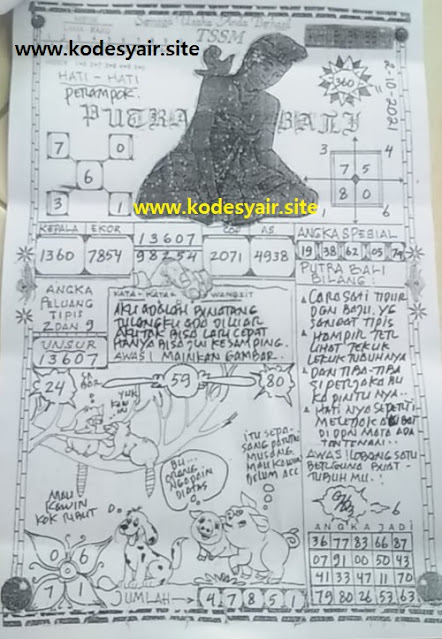 Semoga Usaha Anda Berhasil
TSSM
www.kodesyair.site
HATI - HATI
PERAMPOK
PUTRA BALI
360
2-10-2021
7 0
6
3 1
3 4
7 5
8 0
1 6
www.kodesyair.site
KEPALA EKOR
1360 7854
13607
98254
COP AS
2071 4938
ANGKA SPESIAL
19 38 62 05 74
ANGKA
PELUANG
TIPIS
2 DAN 9
UNSUR
13607
KATA - KATA WANGSIT
AKU ADALAH BINATANG
TULANGKU ADA DILUAR
AKU TAK BISA LARI CEPAT
HANYA BISA KESAMPING.
AWAS! MAINKAN GAMBAR.
PUTRA BALI
BILANG:
CARO SATI TIDUR
DGN BAJU YG
SANGAT TIPIS
HAMPIR TER
LIHAT LEKUK
LEKUK TUBUHNYA
DAN TIBA-TIBA
SI PERJAKA BU
KA PINTU NYA..
HATI NYA SEPERTI
DI DPN MATA ADA
TONTENAN...
AWAS! LOBANG SATU
BERGUNA BUAT-
TUBUH MU..!
24
59
80
YUK
KAWIN
BU...
ORANG
NGAPAIN
DIATAS
ITU SEPA-
SANG
MUSANG
MAU KAWIN
BELUM ACC
MAU
KAWIN
KOK RIBUT
6
0 6
7 1
JUMLAH
4 7 8 5 1
ANGKA JADI
36 77 83 66 87
07 91 00 50 43
41 33 47 11 70
79 80 26 53 63